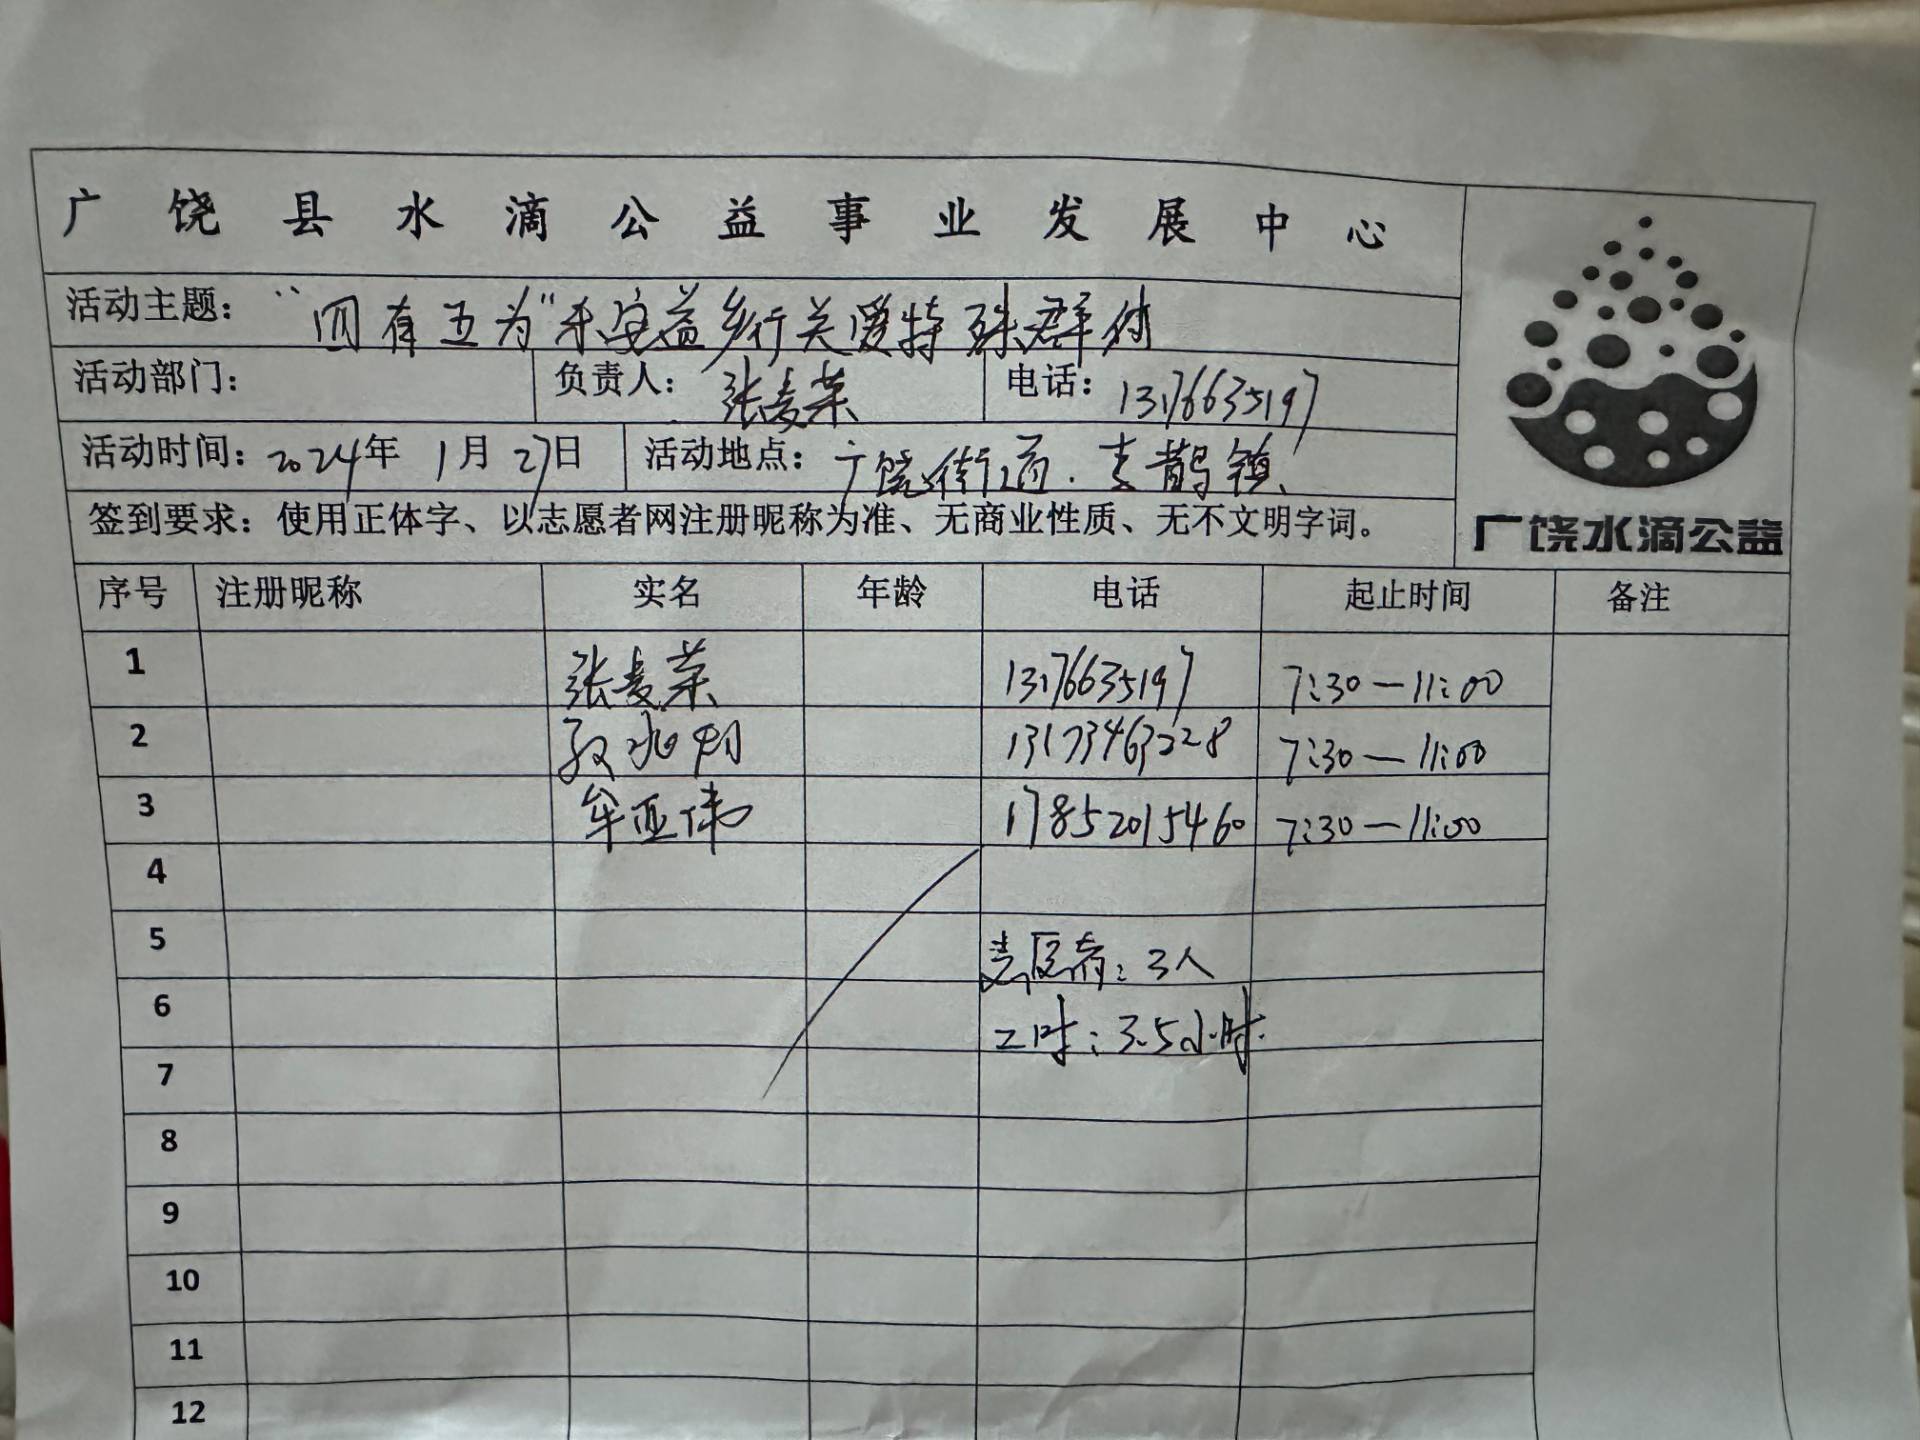 广饶县水滴公益事业发展中心
活动主题：“四有五为”乐安益乡行关爱特殊群体
活动部门： 负责人：张麦荣 电话：13176635197
活动时间：2024年1月27日 活动地点：广饶街道、李鹊镇
签到要求：使用正体字、以志愿者网注册昵称为准、无商业性质、无不文明字词。
广饶水滴公益
序号 注册昵称 实名 年龄 电话 起止时间 备注
1 张麦荣 13176635197 7:30—11:00
2 13173463228 7:30—11:00
3 牟亚伟 17852015460 7:30—11:00
4
5 志愿者：3人
6 工时：3.5小时
7
8
9
10
11
12